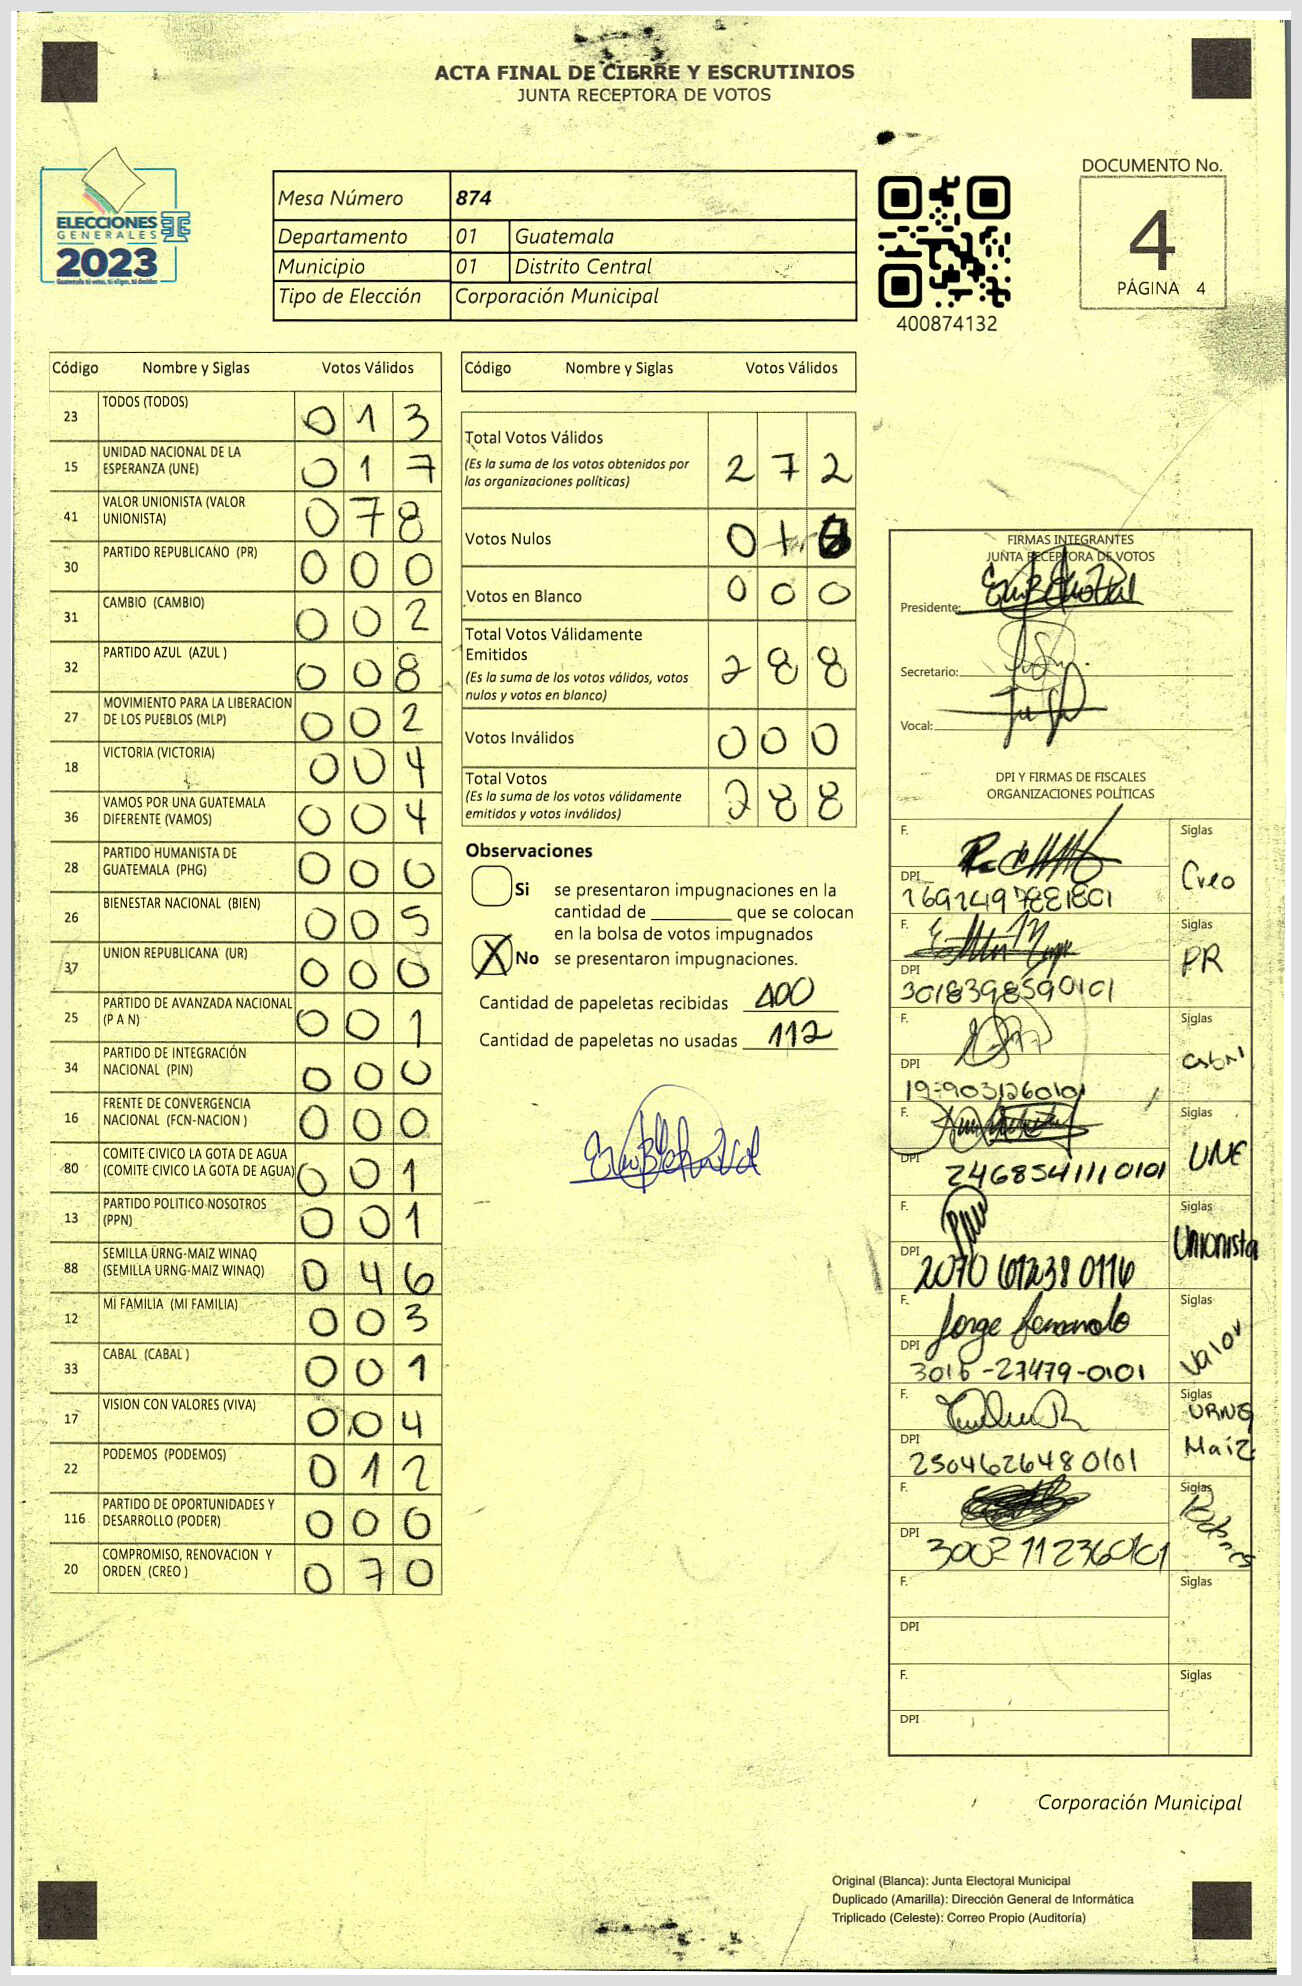 ACTA FINAL DE CIERRE Y ESCRUTINIOS
JUNTA RECEPTORA DE VOTOS
ELECCIONES
GENERALES
2023
Guatemala tú votas, tú eliges, tú decides
Mesa Número 874
Departamento 01 Guatemala
Municipio 01 Distrito Central
Tipo de Elección Corporación Municipal
400874132
DOCUMENTO No.
4
PÁGINA 4
Código Nombre y Siglas Votos Válidos
23 TODOS (TODOS) 0 1 3
15 UNIDAD NACIONAL DE LA ESPERANZA (UNE) 0 1 7
41 VALOR UNIONISTA (VALOR UNIONISTA) 0 7 8
30 PARTIDO REPUBLICANO (PR) 0 0 0
31 CAMBIO (CAMBIO) 0 0 2
32 PARTIDO AZUL (AZUL ) 0 0 8
27 MOVIMIENTO PARA LA LIBERACION DE LOS PUEBLOS (MLP) 0 0 2
18 VICTORIA (VICTORIA) 0 0 4
36 VAMOS POR UNA GUATEMALA DIFERENTE (VAMOS) 0 0 4
28 PARTIDO HUMANISTA DE GUATEMALA (PHG) 0 0 0
26 BIENESTAR NACIONAL (BIEN) 0 0 5
37 UNION REPUBLICANA (UR) 0 0 0
25 PARTIDO DE AVANZADA NACIONAL (P A N) 0 0 1
34 PARTIDO DE INTEGRACIÓN NACIONAL (PIN) 0 0 0
16 FRENTE DE CONVERGENCIA NACIONAL (FCN-NACION ) 0 0 0
80 COMITE CIVICO LA GOTA DE AGUA (COMITE CIVICO LA GOTA DE AGUA) 0 0 1
13 PARTIDO POLITICO NOSOTROS (PPN) 0 0 1
88 SEMILLA URNG-MAIZ WINAQ (SEMILLA URNG-MAIZ WINAQ) 0 4 6
12 MI FAMILIA (MI FAMILIA) 0 0 3
33 CABAL (CABAL ) 0 0 1
17 VISION CON VALORES (VIVA) 0 0 4
22 PODEMOS (PODEMOS) 0 1 2
116 PARTIDO DE OPORTUNIDADES Y DESARROLLO (PODER) 0 0 0
20 COMPROMISO, RENOVACION Y ORDEN (CREO ) 0 7 0
Código Nombre y Siglas Votos Válidos
Total Votos Válidos 2 7 2
(Es la suma de los votos obtenidos por
las organizaciones políticas)
Votos Nulos 0 1
Votos en Blanco 0 0 0
Total Votos Válidamente
Emitidos 2 8 8
(Es la suma de los votos válidos, votos
nulos y votos en blanco)
Votos Inválidos 0 0 0
Total Votos 2 8 8
(Es la suma de los votos válidamente
emitidos y votos inválidos)
Observaciones
Si se presentaron impugnaciones en la
cantidad de ________ que se colocan
en la bolsa de votos impugnados
X No se presentaron impugnaciones.
Cantidad de papeletas recibidas 400
Cantidad de papeletas no usadas 112
FIRMAS INTEGRANTES
JUNTA RECEPTORA DE VOTOS
Presidente:
Secretario:
Vocal:
DPI Y FIRMAS DE FISCALES
ORGANIZACIONES POLÍTICAS
F. Siglas
Creo
DPI
F. Siglas
PR
DPI
3018398590101
F. Siglas
DPI
F. Siglas
UNE
DPI
2468541110101
F. Siglas
Unionista
DPI
2070 61238 0116
F. Jorge Siglas
Valor
DPI
3016-27479-0101
F. Siglas
URNG
Maíz
DPI
2504626480101
F. Siglas
DPI
3002112360101
F. Siglas
DPI
F. Siglas
DPI
Corporación Municipal
Original (Blanca): Junta Electoral Municipal
Duplicado (Amarilla): Dirección General de Informática
Triplicado (Celeste): Correo Propio (Auditoría)